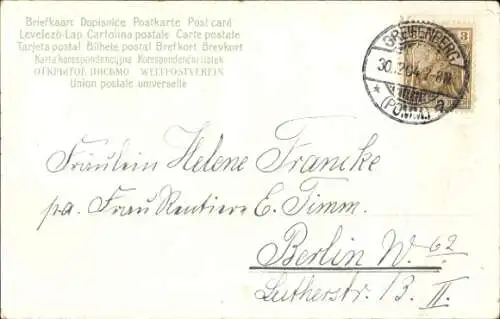 Briefkaart Dopisnice Postkarte Post card
Levelező-Lap Cartolina postale Carte postale
Tarjeta postal Bilhete postal Brefkort Brevkort
Karta korespondencyjna Korespondenční lístek
ОТКРЫТОЕ ПИСЬМО WELTPOSTVEREIN
Union postale universelle
GREIFENBERG
30.12.04. 7-8N.
* (POMM.) a
3
Fräulein Helene Francke
pa. Frau Rentiere E. Timm.
Berlin W. 62
Lutherstr. 13. II.